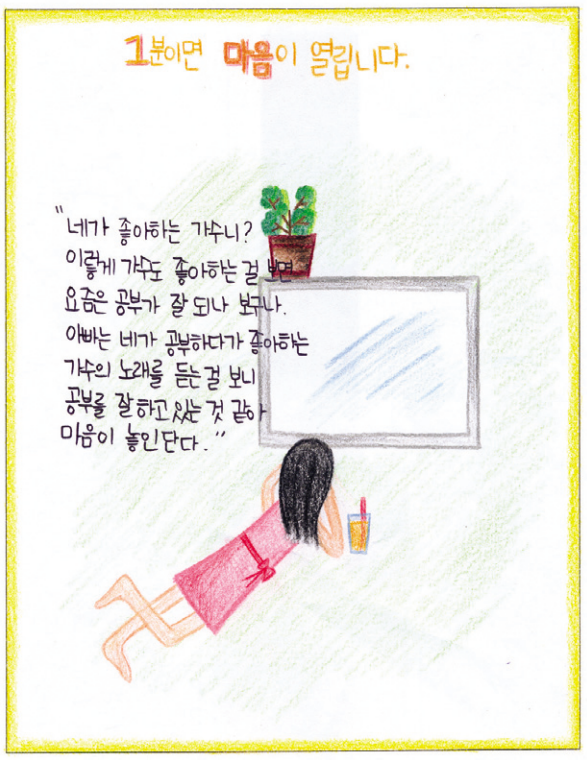 1분이면 마음이 열립니다.
"네가 좋아하는 가수니?
이렇게 가수도 좋아하는 걸 보면
요즘은 공부가 잘 되나 보구나.
아빠는 네가 공부하다가 좋아하는
가수의 노래를 듣는 걸 보니
공부를 잘 하고 있는 것 같아
마음이 놓인단다."